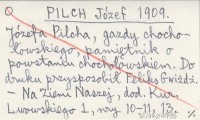 Q PILCH Józef 1909.
Józefa Pilcha, gazdy chocho-
łowskiego, pamiętnik o
powstaniu chochołowskiem. Do
druku przysposobił Feliks Gwiżdż.
— Na Ziemi Naszej, dod. Kur.
Lwowskiego 1, nry 10-11, 13.